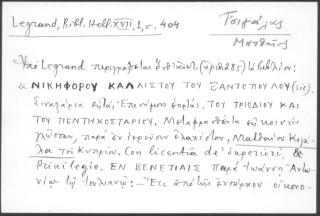 Legrand, Bibl. Hell. XVII, 1, σ. 404
Τσιγάλας
Ματθαῖος
Ὑπὸ Legrand περιγράφεται ἐνταῦθα (ἀριθ. 285) τὸ βιβλίον:
« ΝΙΚΗΦΟΡΟΥ ΚΑΛΛΙΣΤΟΥ ΤΟΥ ΞΑΝΤΟΠΟΥΛΟΥ (sic).
Συναξάρια εἰς τὰς Ἐπισήμους ἑορτάς, ΤΟΥ ΤΡΙΩΔΙΟΥ ΚΑΙ
ΤΟΥ ΠΕΝΤΗΚΟΣΤΑΡΙΟΥ. Μεταφρασθέντα εἰς κοινὴν
γλῶσσαν, παρὰ ἐν ἱερεῦσιν ἐλαχίστου, Ματθαίου Κιγά-
λα τοῦ Κυπρίου. Con licentia de' superiori, &
Privilegio. ΕΝ ΒΕΝΕΤΙΑΙΣ παρὰ Ἰωάννῃ Ἀντω-
νίῳ τῷ Ἰουλιανῷ: — Ἔτει ἀπὸ τῆς ἐνσάρκου οἰκονο-